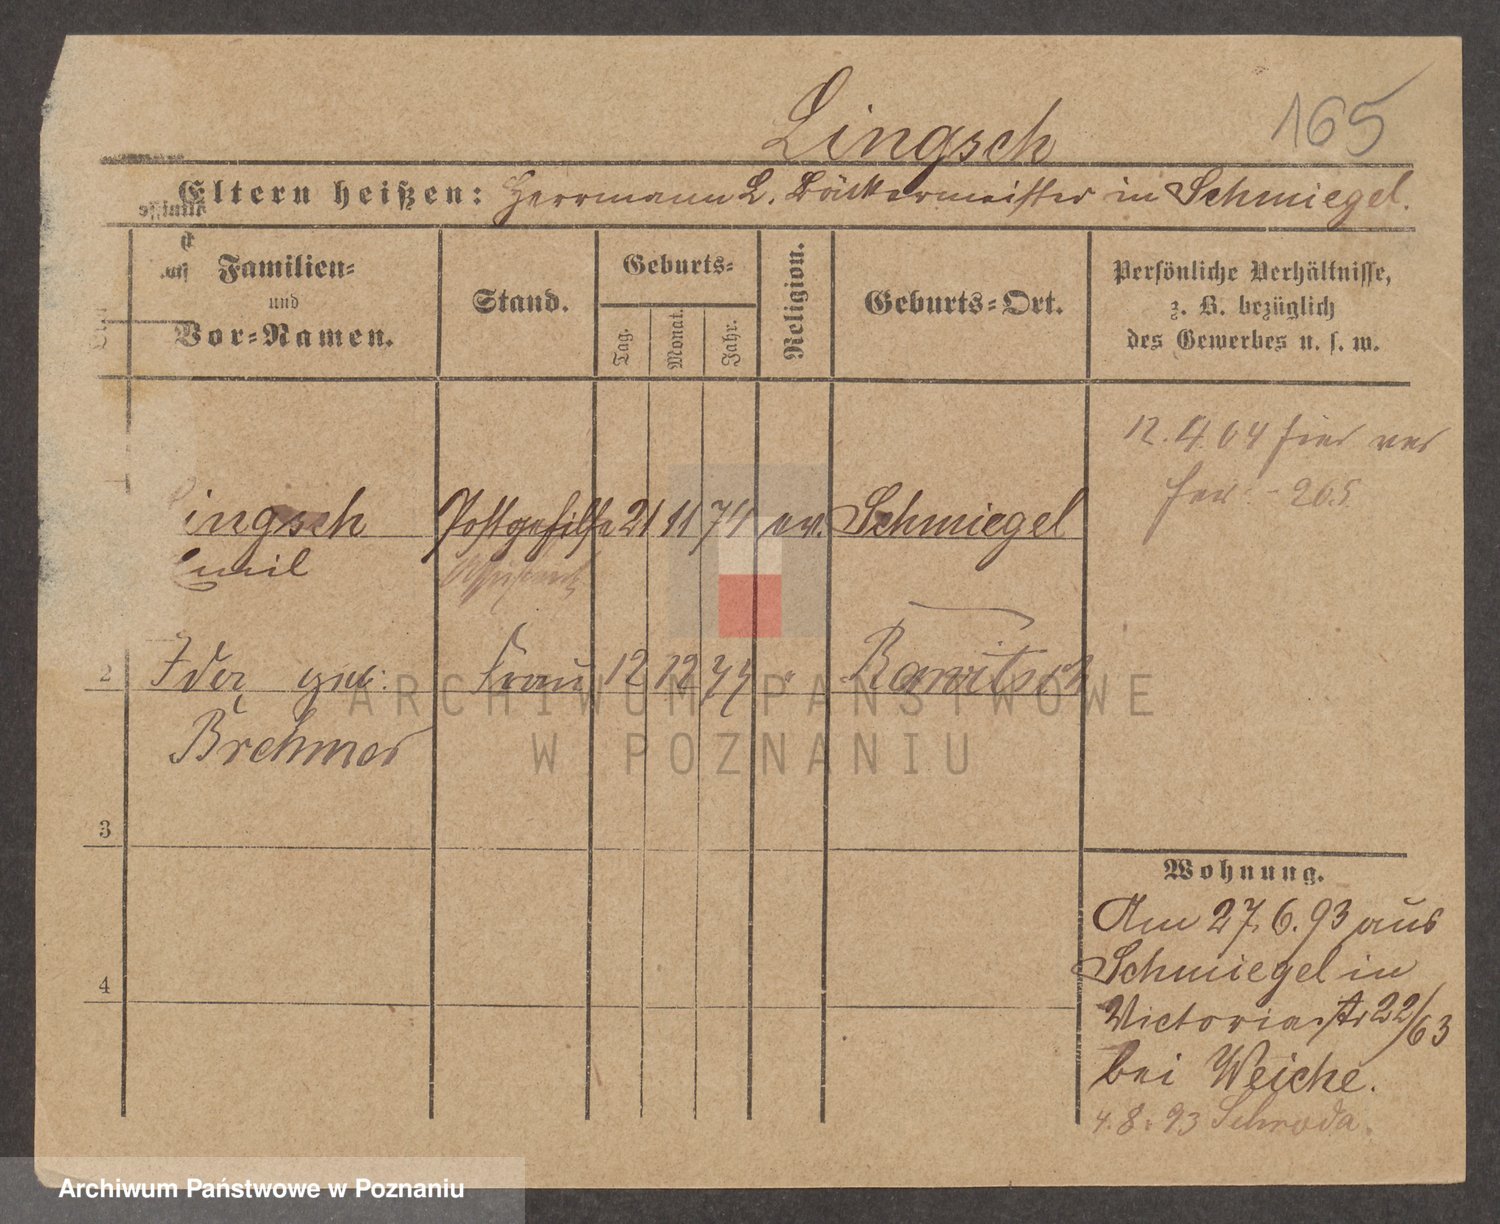 Lingsch
165
Eltern heißen: Herrmann L. Bäckermeister in Schmiegel.
Familien=
und
Vor=Namen.
Stand.
Geburts=
Tag.
Monat.
Jahr.
Religion.
Geburts=Ort.
Persönliche Verhältnisse,
z. B. bezüglich
des Gewerbes u. s. w.
12.4.04 hier
205
ingsch Postgehilfe 21 11 74 ev. Schmiegel
Emil
2 Ida geb: Frau 12 12 74 " Rawitsch
Brehmer
3
4
Wohnung.
Am 27.6.93 aus
Schmiegel in
Victoriastr 22/63
bei Weiche.
4.8.93 Schroda.
ARCHIWUM PAŃSTWOWE
W POZNANIU
Archiwum Państwowe w Poznaniu